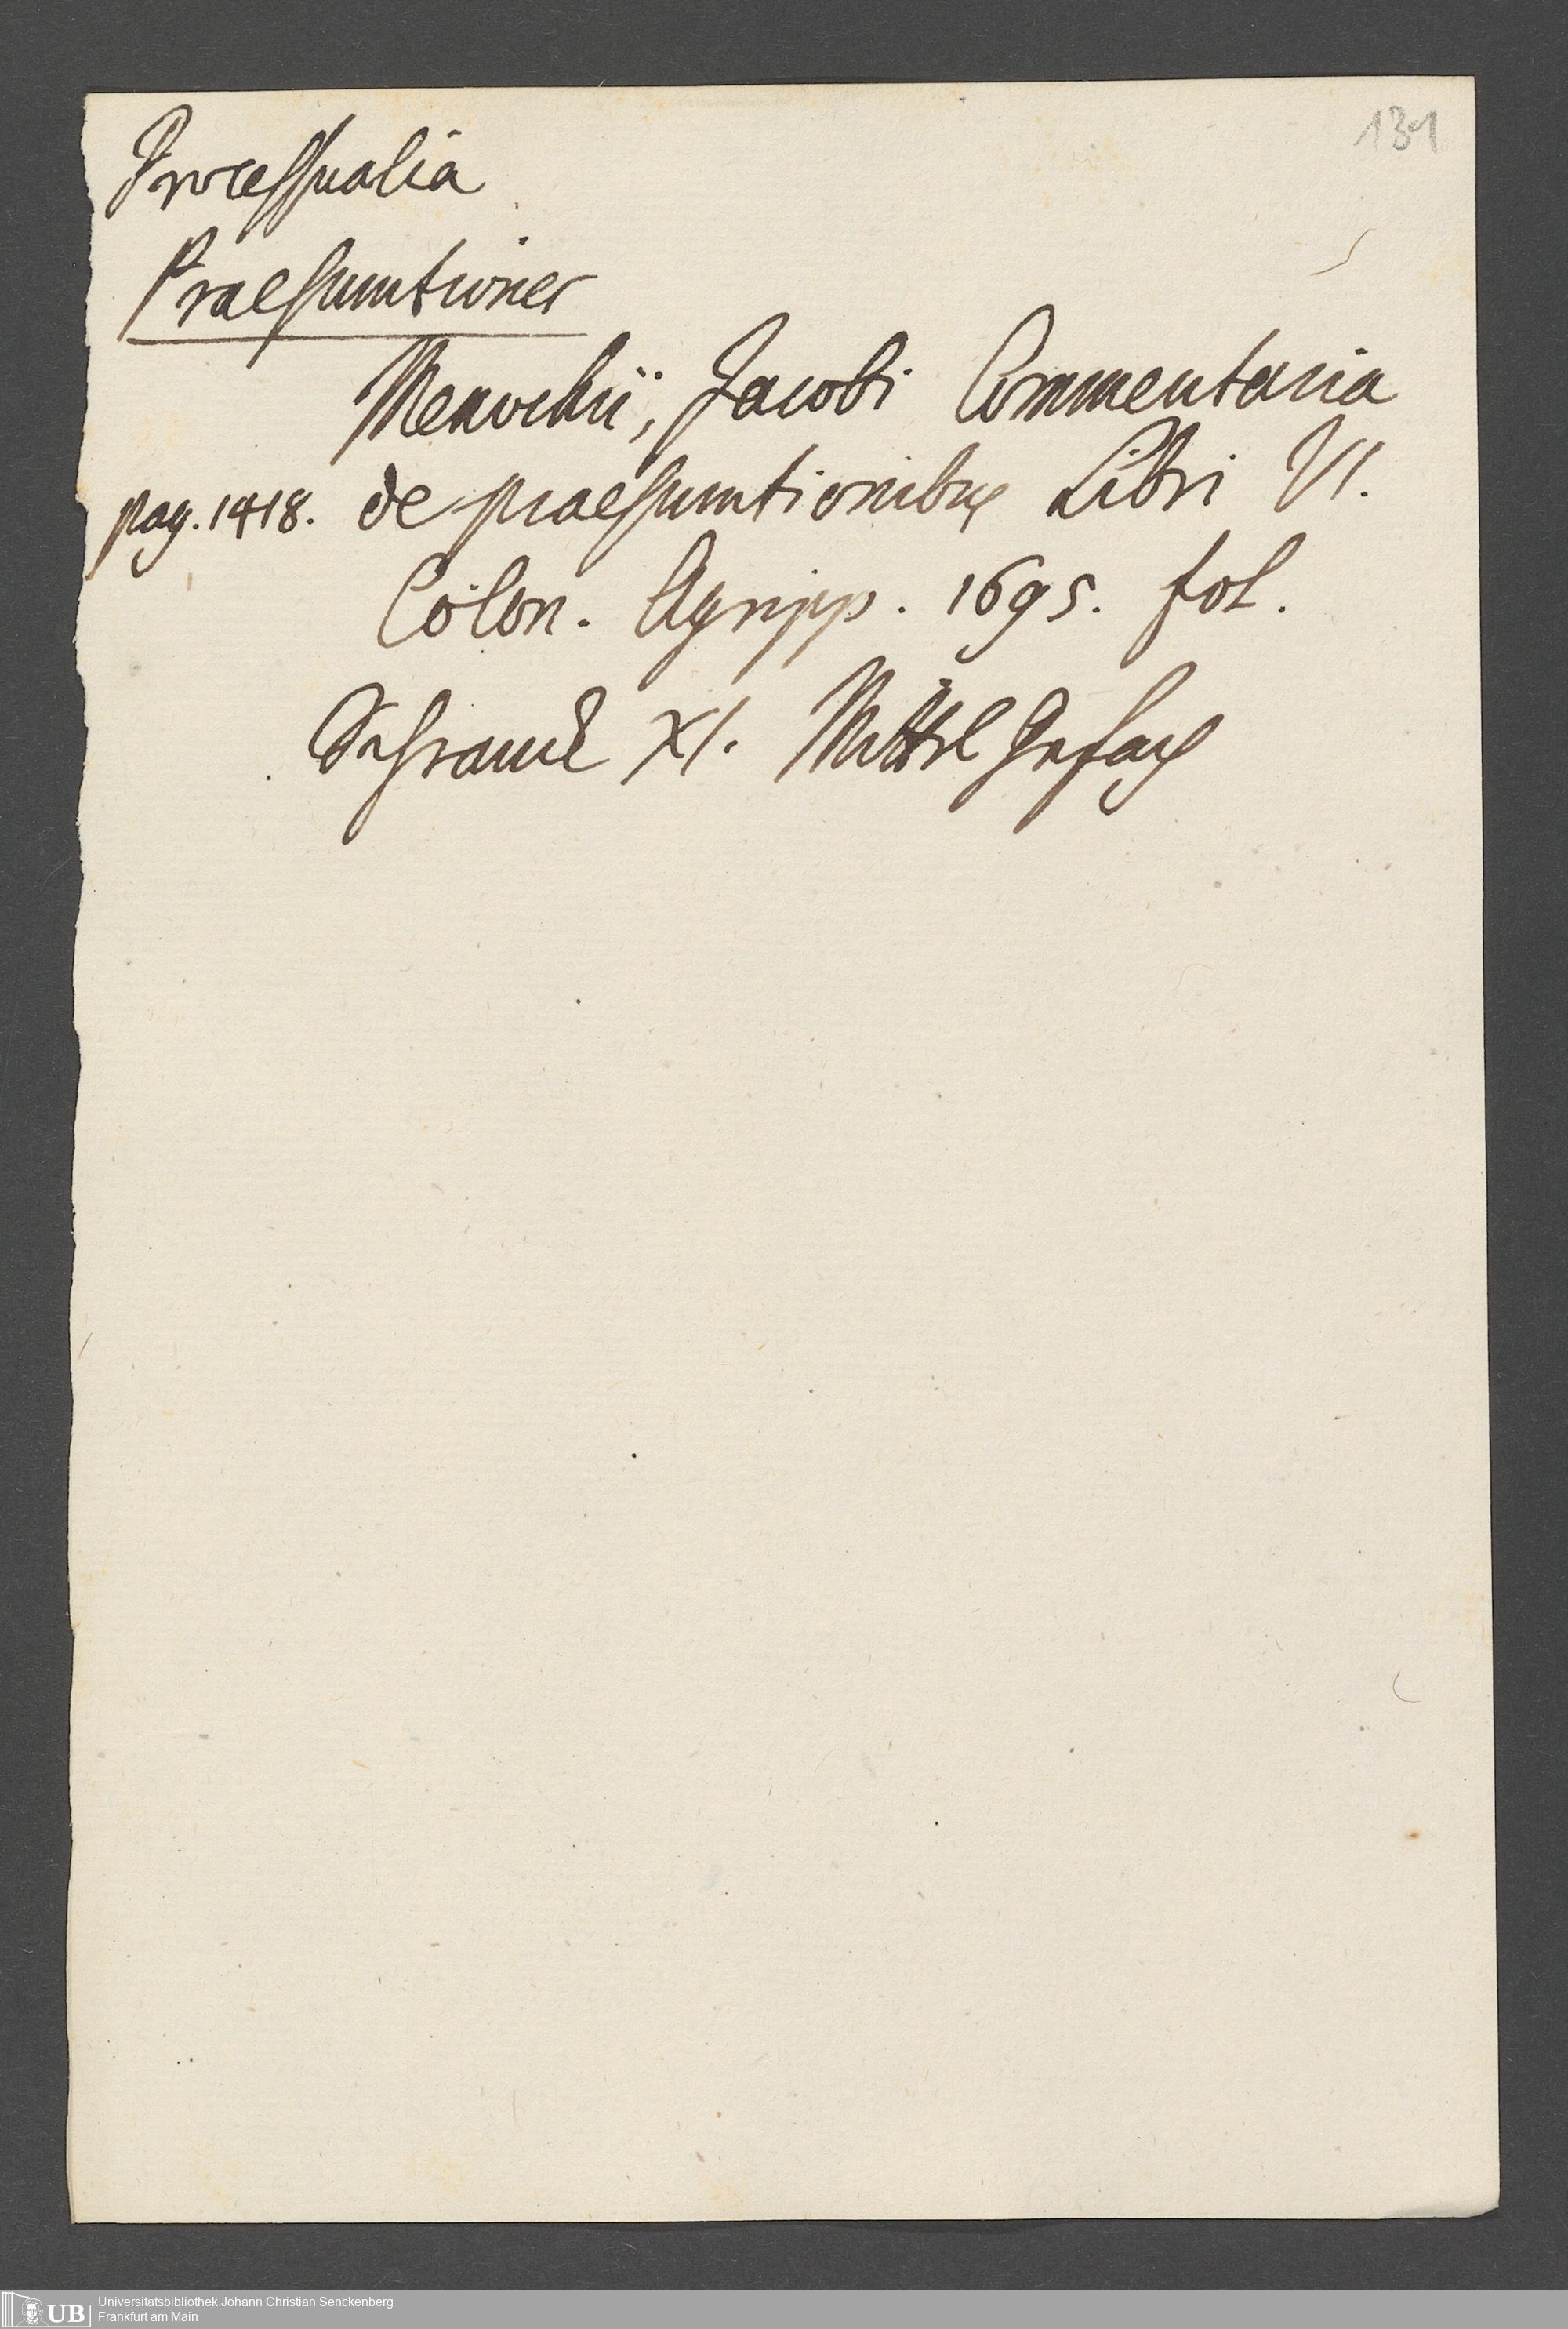 131
Processualia
Praesumtiones
Menochii, Jacobi Commentaria
pag. 1418. de praesumtionibus Libri VI.
Colon. Agripp. 1695. fol.
Schrank XI. Mittel Gefach
Universitätsbibliothek Johann Christian Senckenberg
Frankfurt am Main
UB